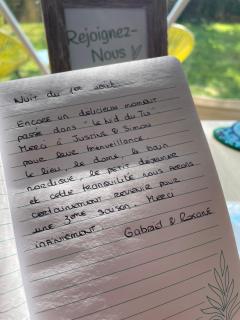 Rejoignez-
Nous
Nuit du 1er août.
Encore un délicieux moment
passé dans "Le Nid du Tis
Merci à Justine & Simon
pour leur bienveillance
le lieu, le dome, le bain
nordique, le petit déjeuner
et cette tranquilité nous ferons
certainement revenir pour
une 3ème saison. Merci
infiniment
Gabriel & Roxane